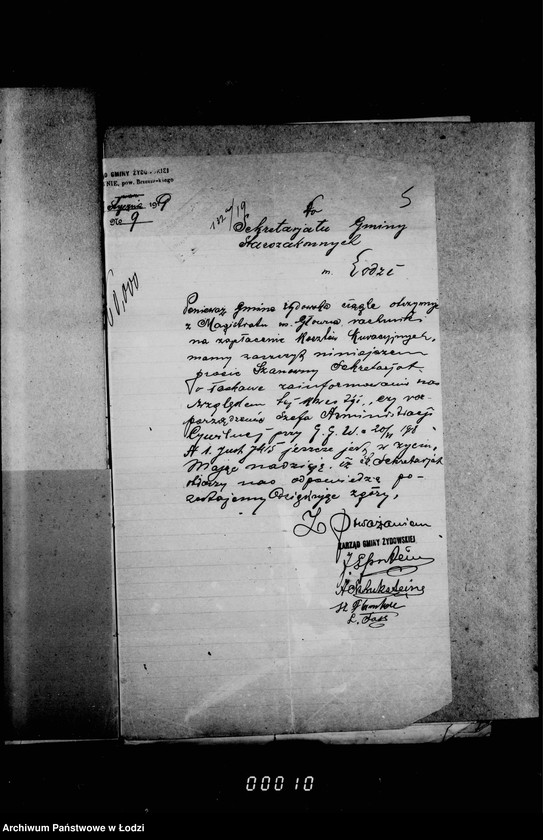 GMINY ŻYDOWSKIEJ
pow. Brzezińskiego
Stycznia 1919
No 9
5
132/19
Do
Sekretarjatu Gminy
Starozakonnych
m. Łodzi
Ponieważ Gmina Żydowska ciągle otrzymuje
z Magistratu m. Główna rachunki
na zapłacenie Kosztów Kuracyjnych,
mamy zaszczyt niniejszem
prosić Szanowny Sekretarjat
o łaskawe zainformowanie nas
względem tej czy roz-
porządzenie Szefa Administracji
Cywilnej przy G. G. W. z
jeszcze jest w życiu,
Mając nadzieję, iż Sekretarjat
nas odpowiedzią po-
zostajemy Dziękując z góry,
Z Poważaniem
ZARZĄD GMINY ŻYDOWSKIEJ
00010
Archiwum Państwowe w Łodzi